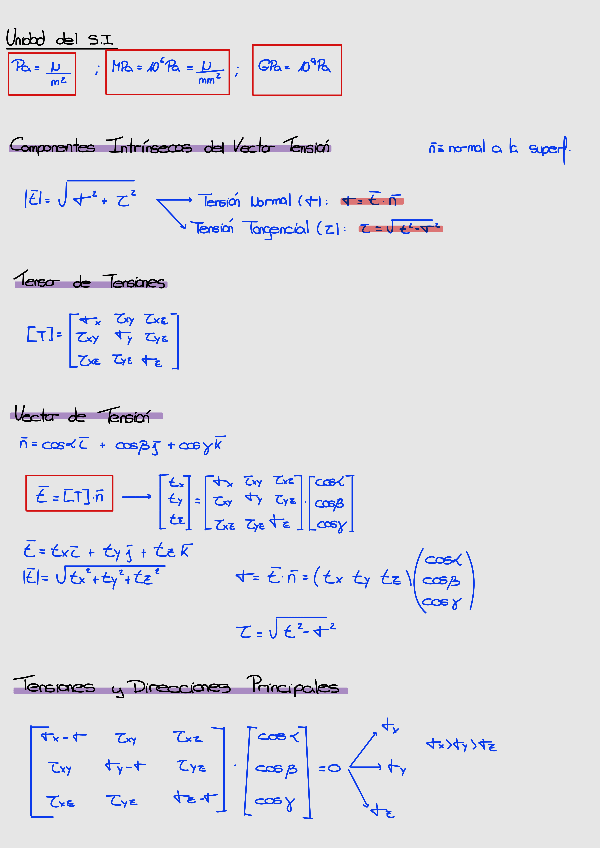 Unidad del S.I
Pa = N/m² ; MPa = 10⁶ Pa = N/mm² ; GPa = 10⁹ Pa
Componentes Intrínsecos del Vector Tensión n̄ = normal a la superf.
|t̄| = √(σ² + τ²) → Tensión Normal (σ): σ = t̄ · n̄
→ Tensión Tangencial (τ): τ = √(t² - σ²)
Tensor de Tensiones
σx τxy τxz
[T] = τxy σy τyz
τxz τyz σz
Vector de Tensión
n̄ = cosα ī + cosβ j̄ + cosγ k̄
tx σx τxy τxz cosα
t̄ = [T] · n̄ → ty = τxy σy τyz · cosβ
tz τxz τyz σz cosγ
t̄ = tx ī + ty j̄ + tz k̄
|t̄| = √(tx² + ty² + tz²) σ = t̄ · n̄ = (tx ty tz) (cosα cosβ cosγ)
τ = √(t² - σ²)
Tensiones y Direcciones Principales
σx - σ τxy τxz cosα σx
τxy σy - σ τyz · cosβ = 0 → σy σx > σy > σz
τxz τyz σz - σ cosγ σz